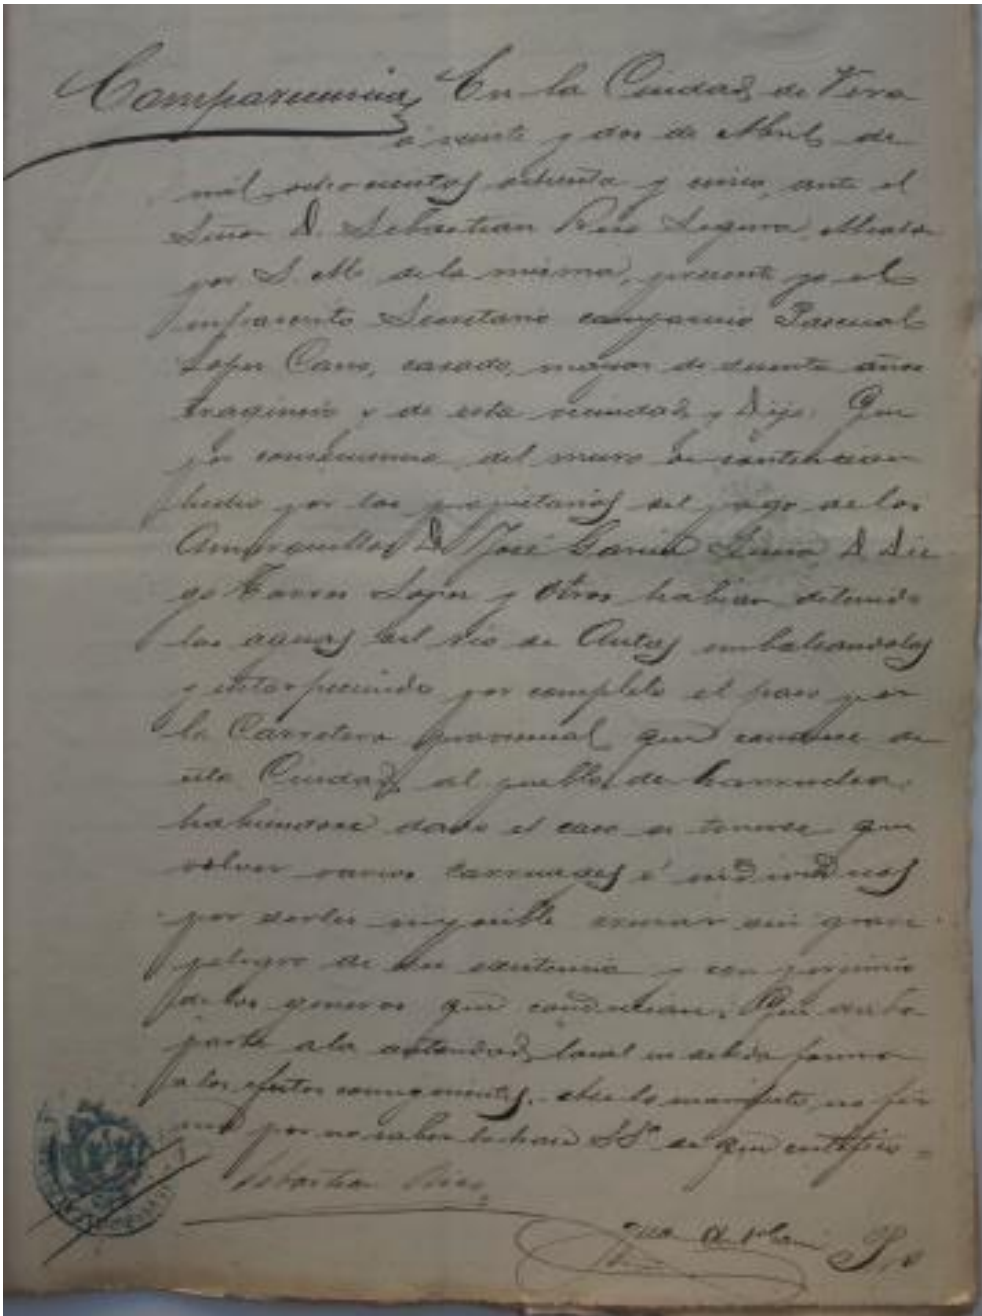 Comparecencia, En la Ciudad de Vera
á veinte y dos de Abril de
mil ochocientos ochenta y cinco, ante el
Señor D. Sebastian Segura, Alcalde
por S. M. de la misma, presente yo el
infrascrito Secretario comparecio Pascual
Lopez Cano, casado, mayor de años
traginero y de esta vecindad, y dijo: Que
por consecuencia del muro de contencion
hecho por los propietarios del pago de los
Amarguillos D. José Garcia D. Die
go Lopez y otros habian detenido
las aguas del rio de Antas embalsandolas
y entorpeciendo por completo el paso por
la Carretera provincial que conduce de
esta Ciudad al pueblo de
habiendose dado el caso de tenerse que
volver varios carruages é individuos
por serles imposible cruzar sin grave
peligro de su existencia y con perjuicio
de los generos que conducian. Que daba
parte a la autoridad local en debida forma
a los efectos consiguientes. Asi lo manifestó, no fir
mó por no saber lo hace SSª de que certifico =
Sebastian